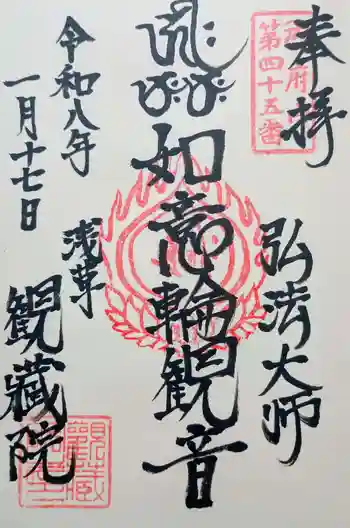 奉拝
第四十五番
弘法大師
如意輪観音
令和八年
一月十七日
浅草
観蔵院